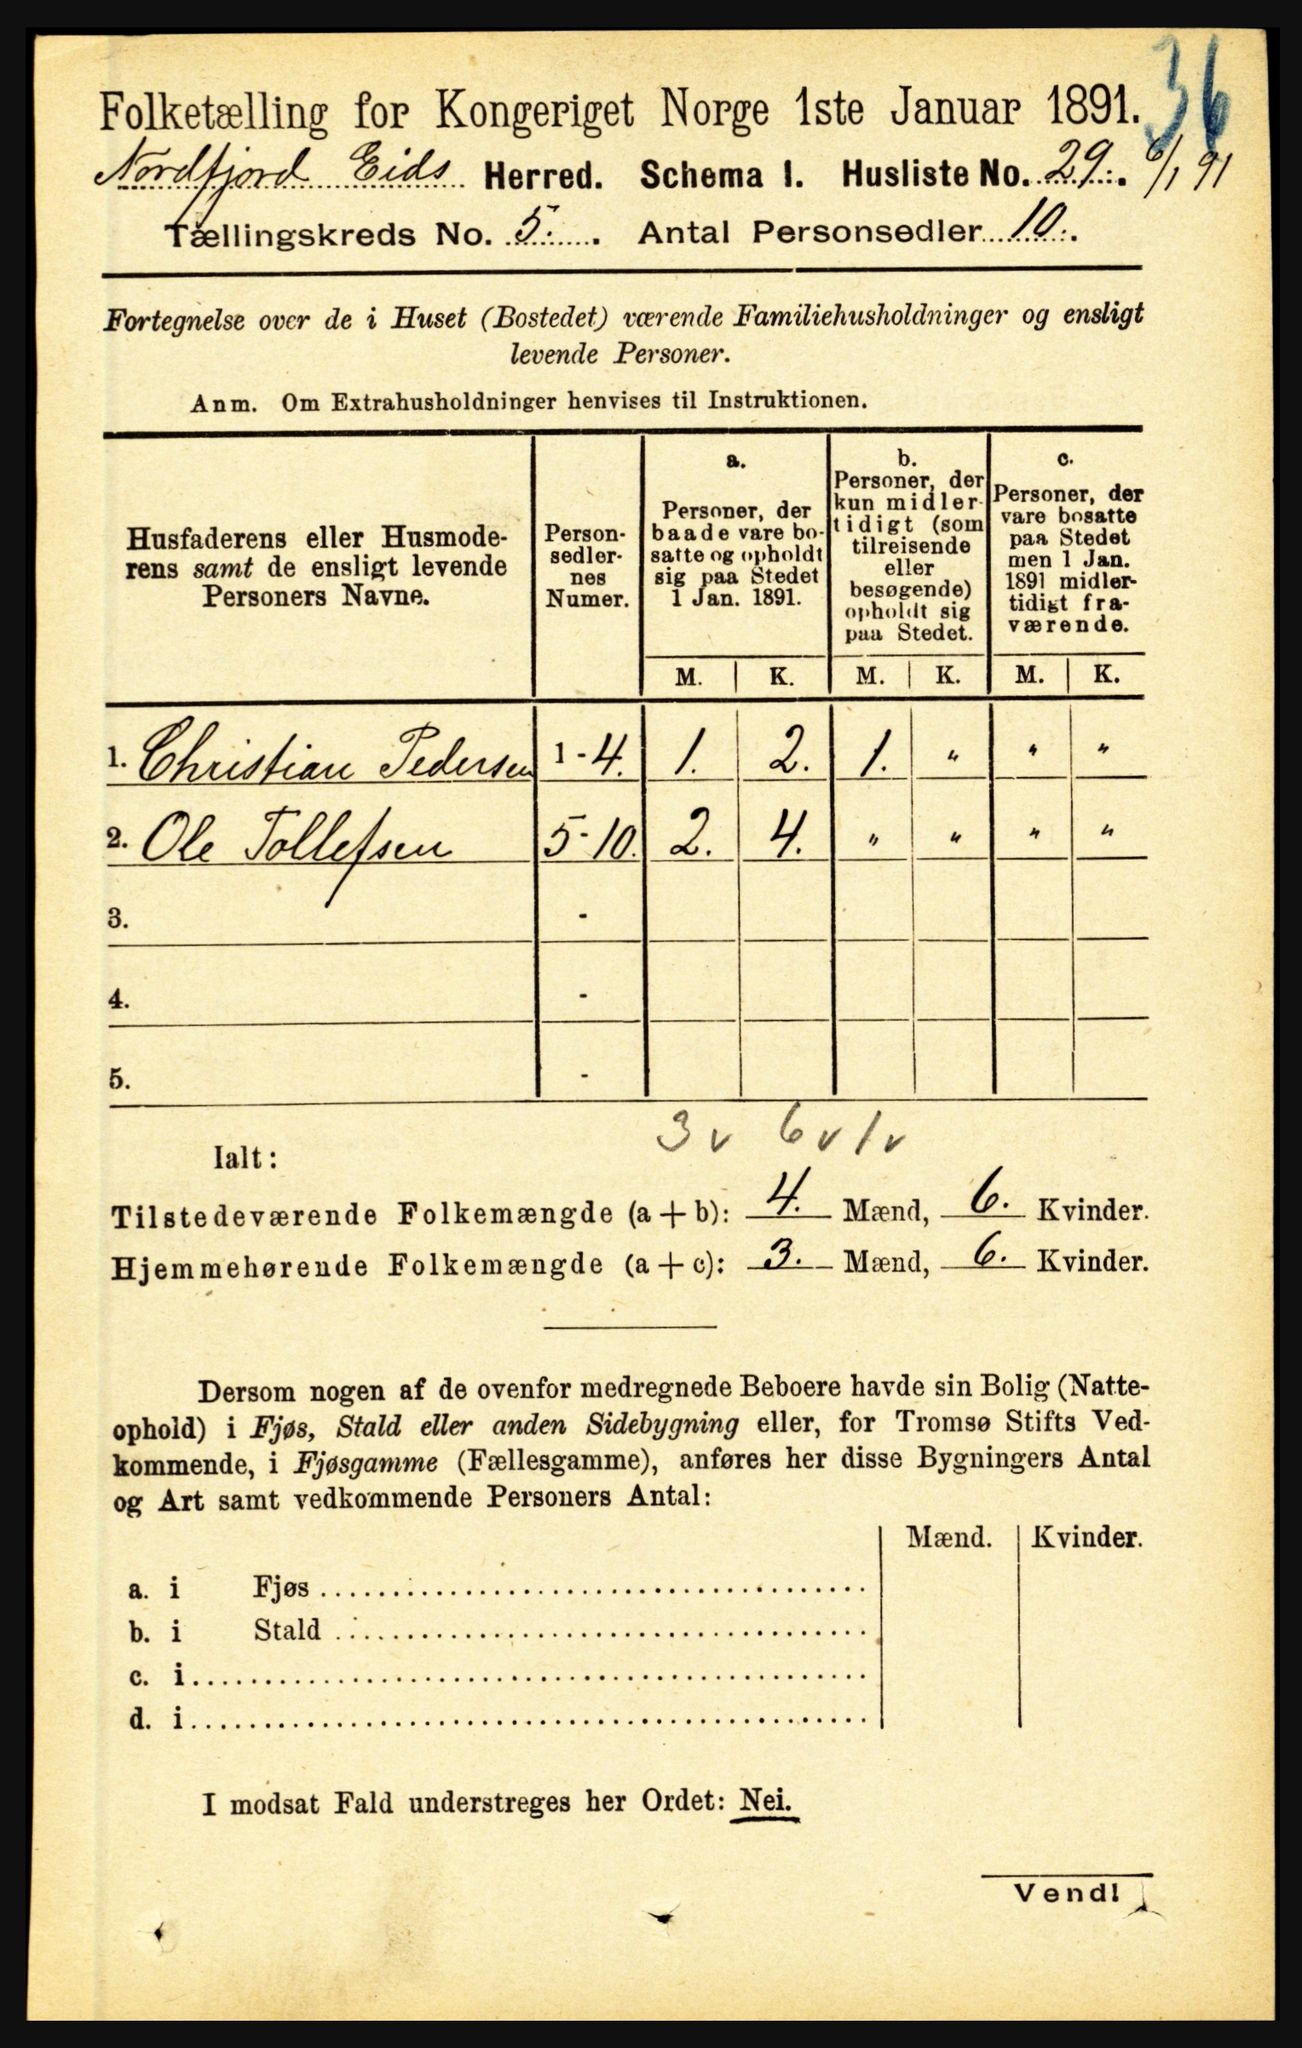 36
Folketælling for Kongeriget Norge 1ste Januar 1891.
Nordfjord Eids Herred. Schema I. Husliste No. 29. 6/1 91
Tællingskreds No. 5. Antal Personsedler 10.
Fortegnelse over de i Huset (Bostedet) værende Familiehusholdninger og ensligt
levende Personer.
Anm. Om Extrahusholdninger henvises til Instruktionen.
Husfaderens eller Husmode-
rens samt de ensligt levende
Personers Navne.
Person-
sedler-
nes
Numer.
a.
Personer, der
baade vare bo-
satte og opholdt
sig paa Stedet
1 Jan. 1891.
b.
Personer, der
kun midler-
tidigt (som
tilreisende
eller
besøgende)
opholdt sig
paa Stedet.
c.
Personer, der
vare bosatte
paa Stedet
men 1 Jan.
1891 midler-
tidigt fra-
værende.
M. K. M. K. M. K.
1. Christian Pedersen 1-4. 1. 2. 1. " " "
2. Ole Tollefsen 5-10. 2. 4. " " " "
3. -
4. -
5. -
3 v 6 v 1 v
Ialt:
Tilstedeværende Folkemængde (a + b): 4. Mænd, 6. Kvinder.
Hjemmehørende Folkemængde (a + c): 3. Mænd, 6. Kvinder.
Dersom nogen af de ovenfor medregnede Beboere havde sin Bolig (Natte-
ophold) i Fjøs, Stald eller anden Sidebygning eller, for Tromsø Stifts Ved-
kommende, i Fjøsgamme (Fællesgamme), anføres her disse Bygningers Antal
og Art samt vedkommende Personers Antal:
Mænd. Kvinder.
a. i Fjøs
b. i Stald
c. i
d. i
I modsat Fald understreges her Ordet: Nei.
Vend!